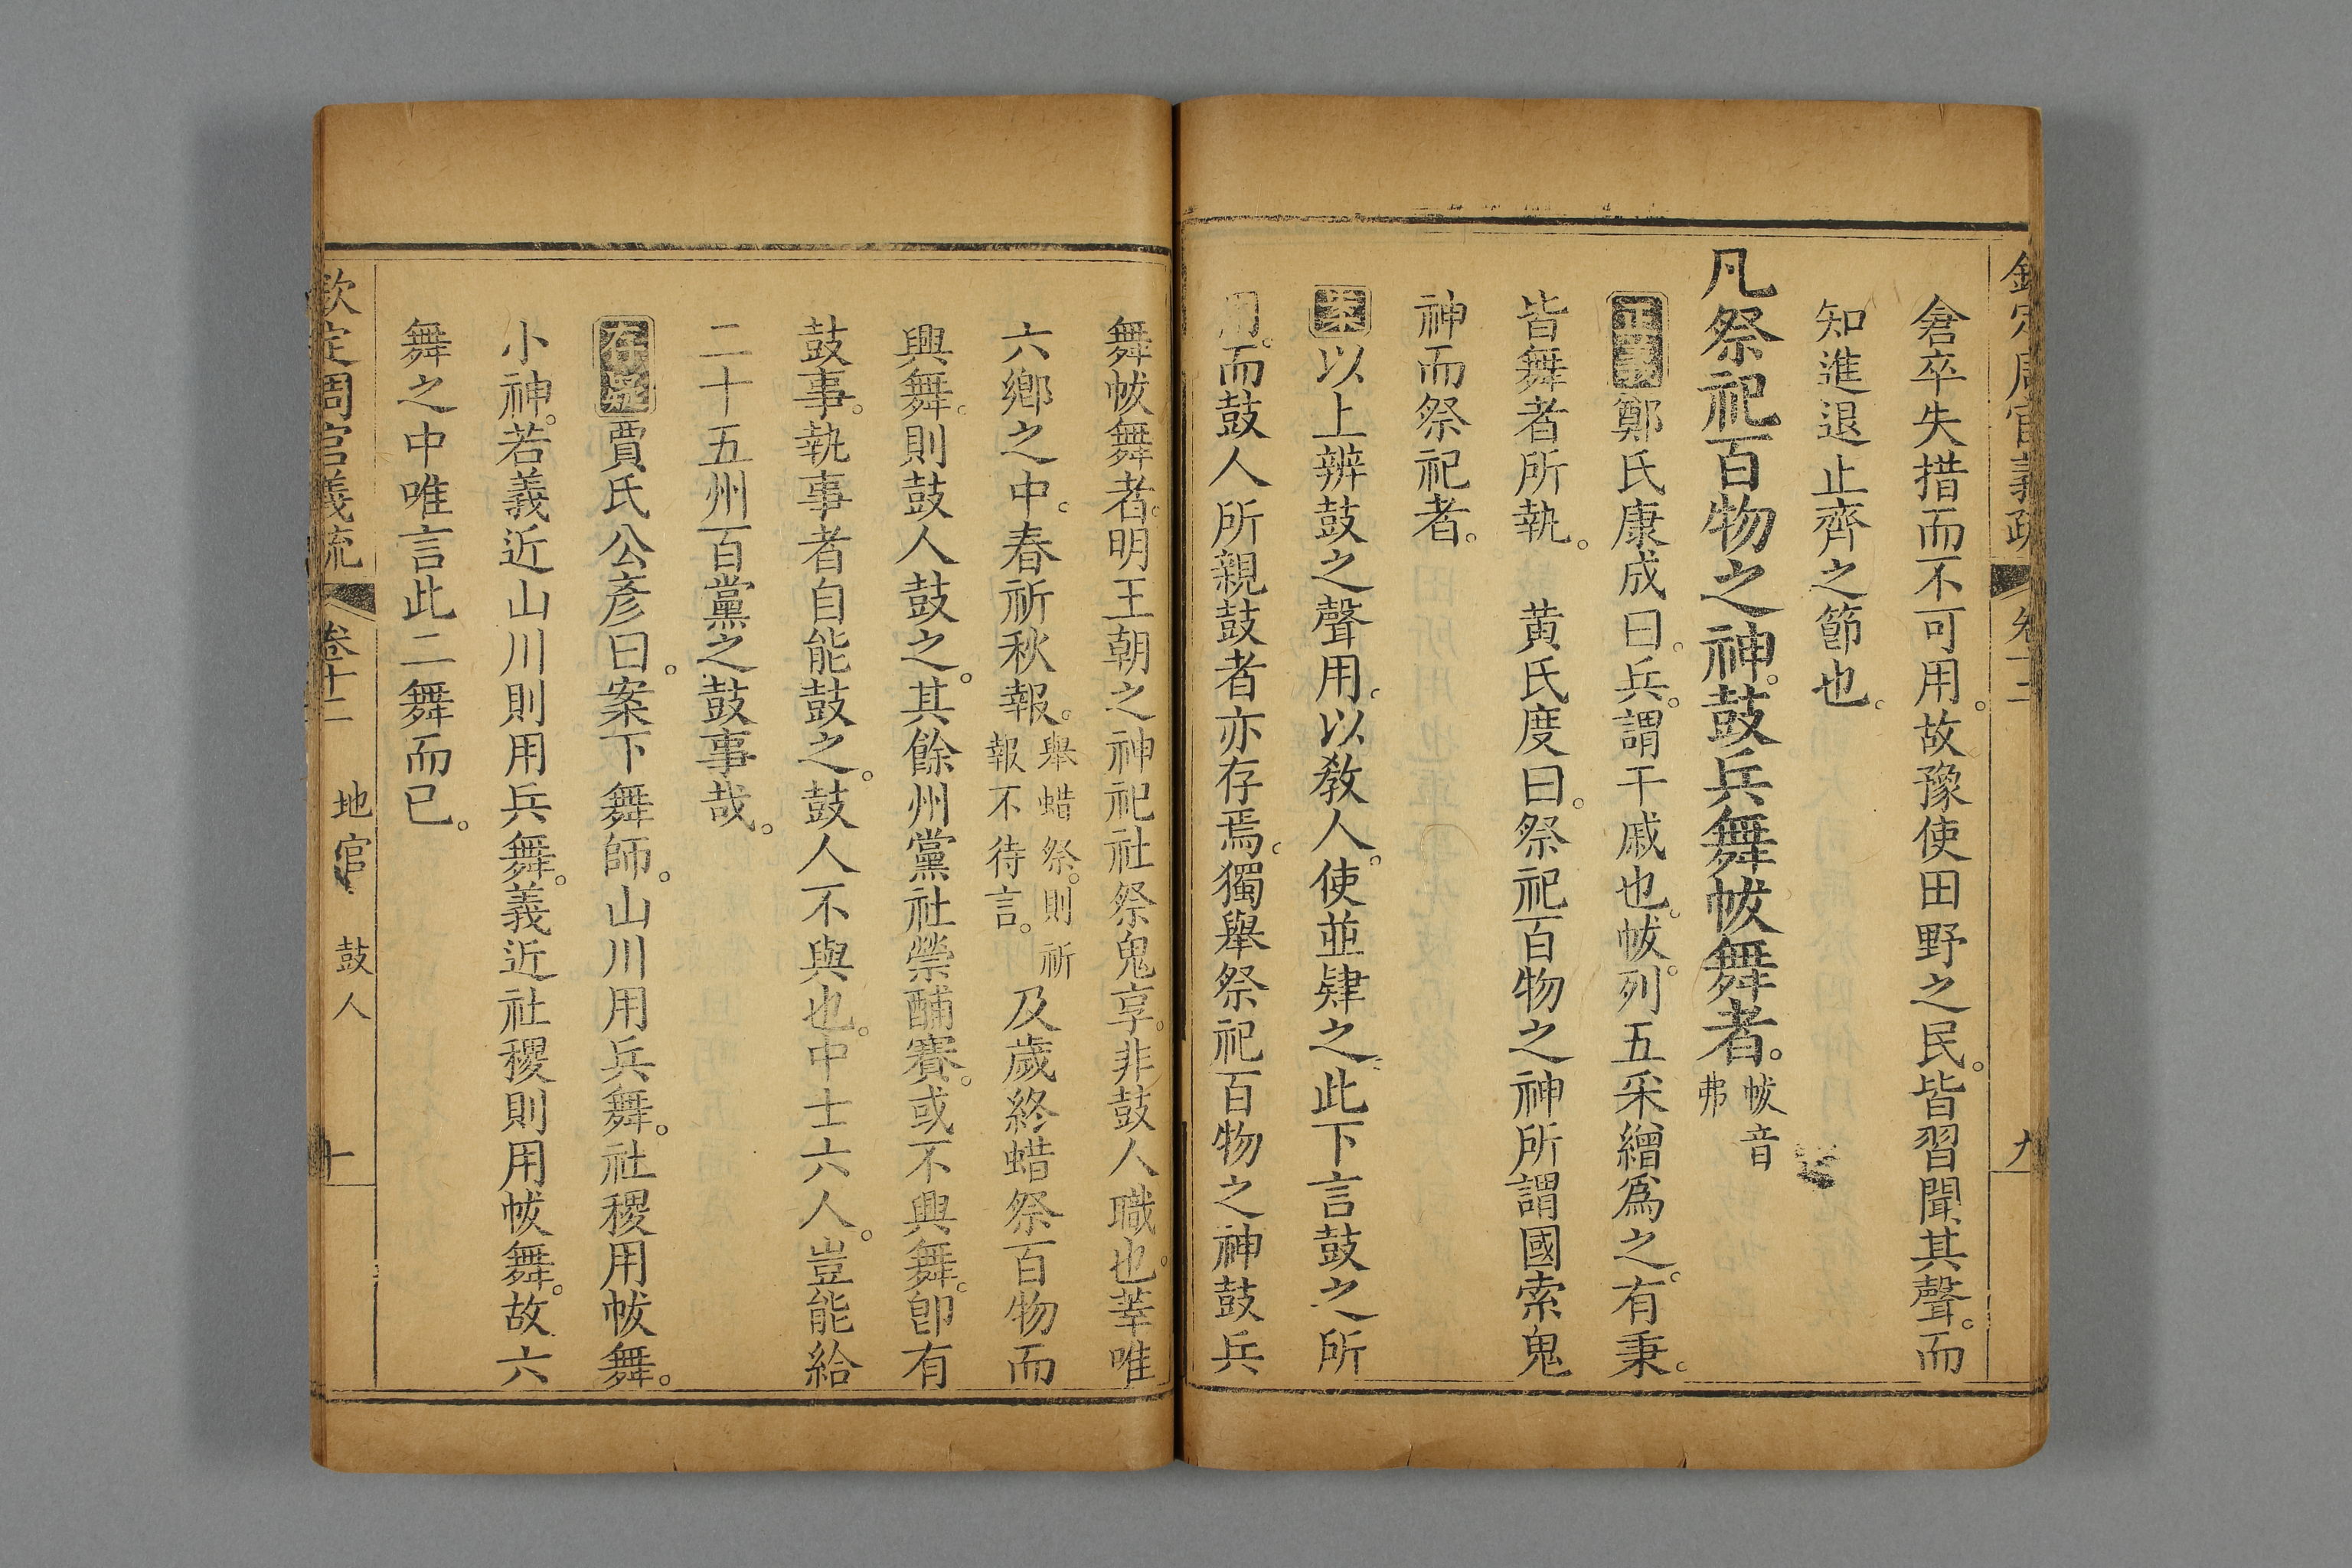 欽定周官義疏 卷十二 九
倉卒失措而不可用。故豫使田野之民。皆習聞其聲。而
知進退止齊之節也。
凡祭祀百物之神。鼓兵舞帗舞者。帗音弗
正義鄭氏康成曰。兵。謂干戚也。帗。列五采繒爲之。有秉。
皆舞者所執。 黄氏度曰。祭祀百物之神所謂國索鬼
神而祭祀者。
案以上辨鼓之聲用。以教人。使並肄之。此下言鼓之所
用。而鼓人所親鼓者亦存焉。獨舉祭祀百物之神鼓兵
舞帗舞者。明王朝之神祀社祭鬼享。非鼓人職也。葢唯
六鄉之中。春祈秋報。舉蜡祭。則祈報不待言。及歲終蜡祭百物而
興舞。則鼓人鼓之。其餘州黨社禜酺賽。或不興舞。卽有
鼓事。執事者自能鼓之。鼓人不與也。中士六人。豈能給
二十五州百黨之鼓事哉。
存疑賈氏公彥曰。案下舞師。山川用兵舞。社稷用帗舞。
小神。若義近山川則用兵舞。義近社稷則用帗舞。故六
舞之中唯言此二舞而已。
欽定周官義疏 卷十二 地官 鼓人 十